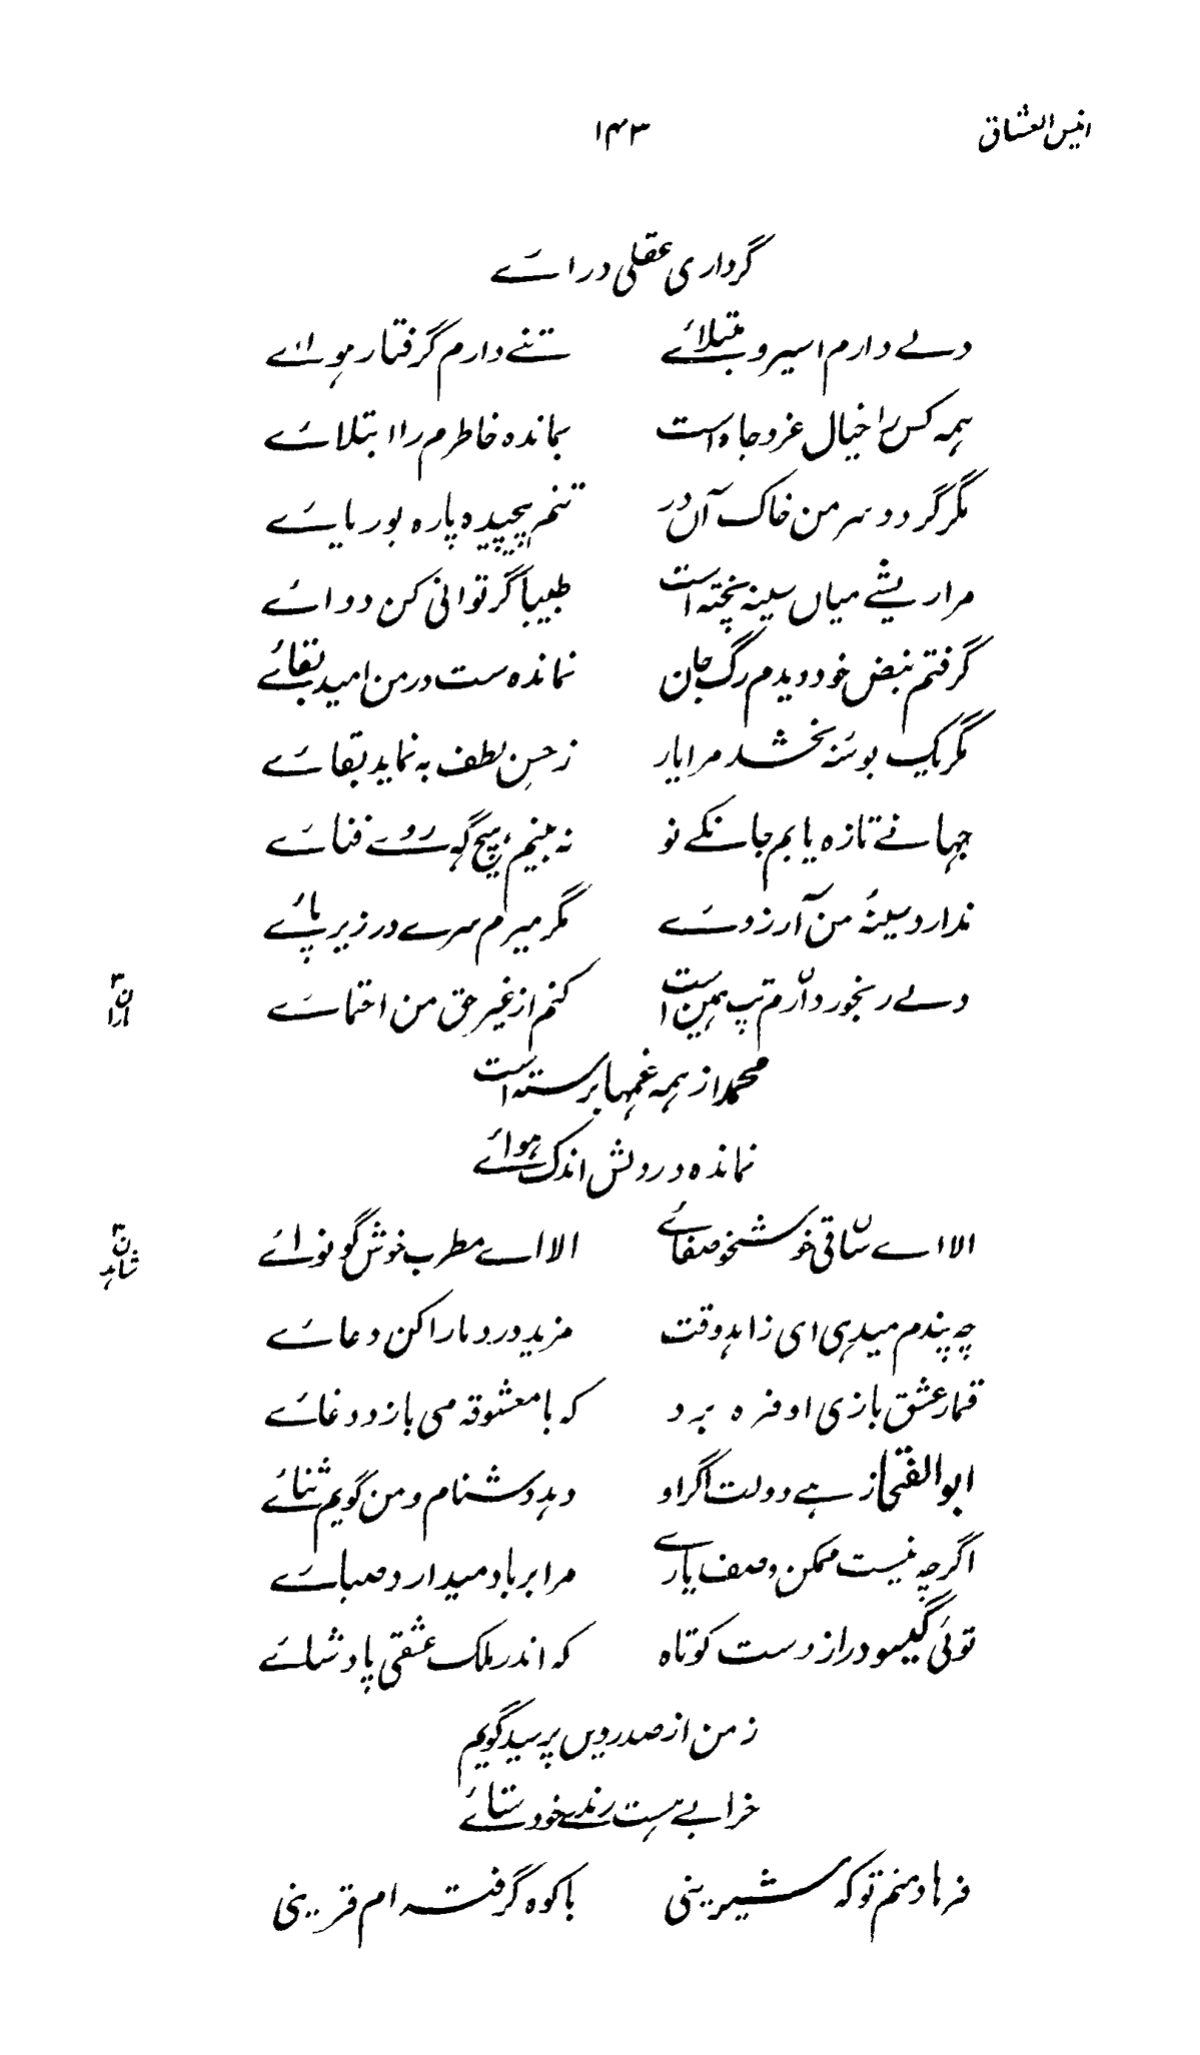 انیس العشاق ۱۴۳
گرداری عقلی دراے
دلے دارم اسیر و مبتلائے تنے دارم گرفتار ہوائے
ہمہ کس را خیال عز و جاہ است بماندہ خاطرم را ابتلائے
مگر گردد سر من خاک آں در تنم پیچیدہ پارہ بوریائے
مرا ریشے میاں سینہ پختہ است طبیبا گر توانی کن دوائے
گرفتم نبض خود دیدم رگ جان نماندہ ست در من امید بقائے
مگر یک بوسۂ بخشد مرا یار ز حسن لطف بہ نماید بقائے
جہانے تازہ یابم جانکے نو نہ بینم ہیچ گہ روے فنائے
ندارد سینۂ من آرزوئے مگر میرم سرے در زیر پائے
دلے رنجور دارم تپ ہمین است کنم از غیر حق من احتمائے
۳ ن ارا
محمد از ہمہ غمہا برستہ است
نماندہ در دلش اندک ہوائے
الا اے ساقی خوشخو صفائے الا اے مطرب خوش گو نوائے
۳ ن شاہد
چہ پندم میدہی ای زاہد وقت مزید درد ما را کن دعائے
قمار عشق بازی او فرہ برد کہ با معشوقہ می بازد دغائے
ابو الفتحا زہے دولت اگر او دہد دشنام و من گویم ثنائے
اگرچہ نیست ممکن وصف یارے مرا برباد میدارد صبائے
توئی گیسو دراز دست کوتاہ کہ اندر ملک عشقی پادشاے
ز من از صدر دیں پرسید گویم
خرابے ہست رندے خود ستائے
فرہاد منم تو کہ شیرینی با کوہ گرفتہ ام قرینی